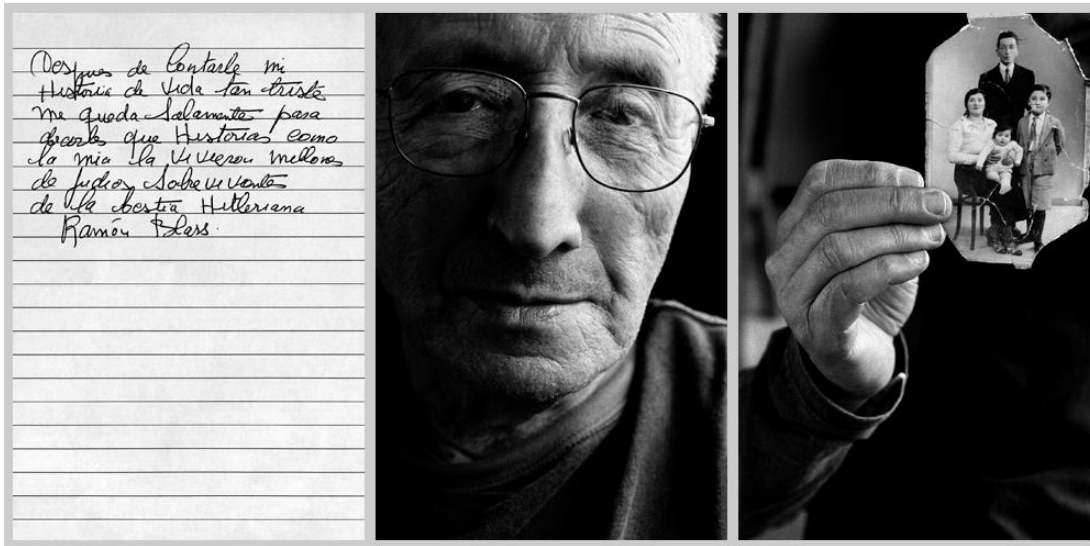 Despues de Contarle mi
Historia de Vida tan triste
me queda Solamente para
decirles que Historias como
la mia la Vivieron millones
de judios Sobrevivientes
de la bestia Hitleriana
Ramón Blass.